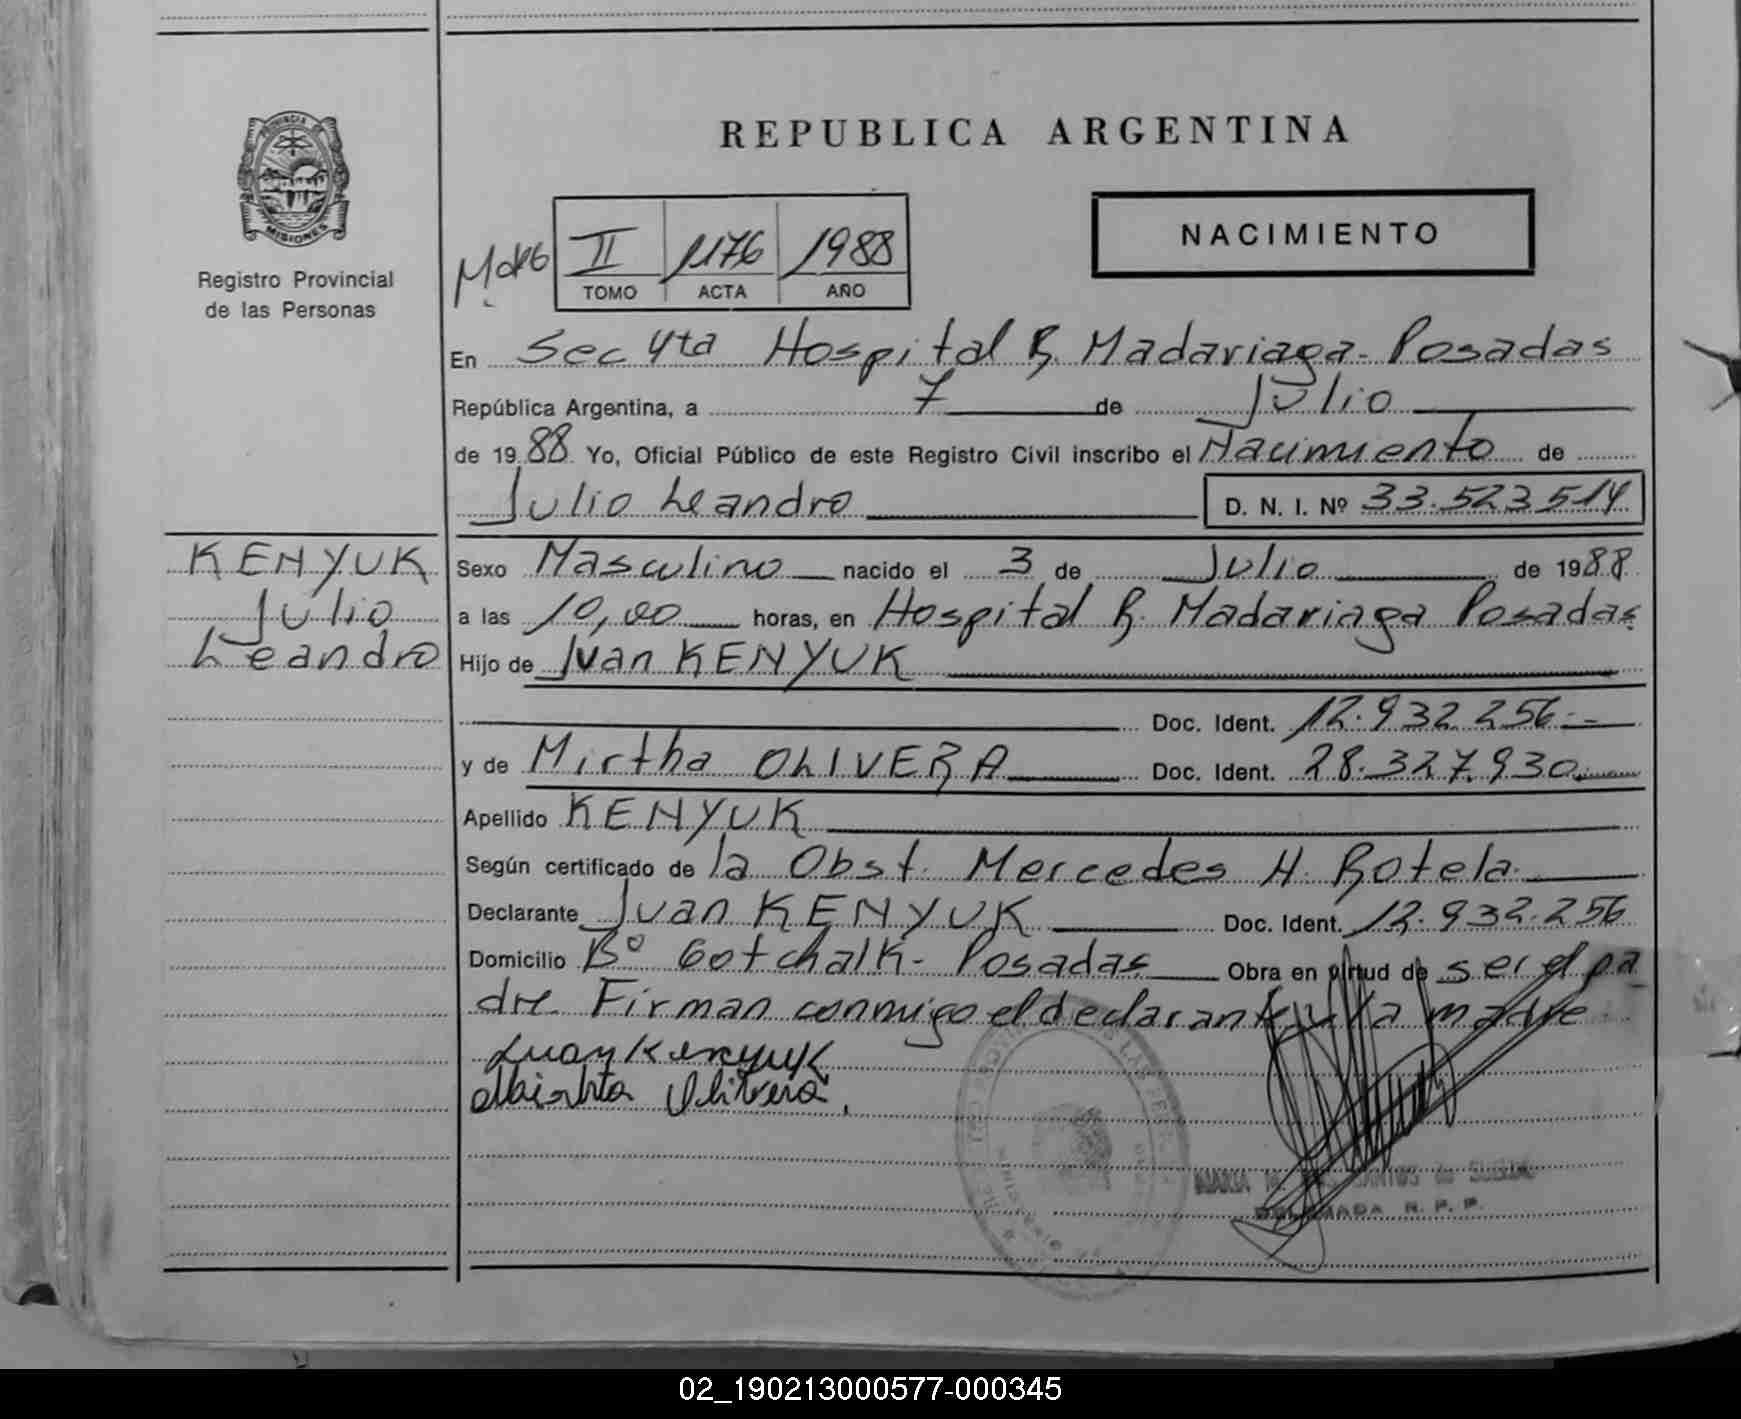 PROVINCIA DE
MISIONES
Registro Provincial
de las Personas
REPUBLICA ARGENTINA
NACIMIENTO
II 1176 1988
TOMO ACTA AÑO
En Sec 4ta Hospital R. Madariaga - Posadas
República Argentina, a 7 de Julio
de 1988 Yo, Oficial Público de este Registro Civil inscribo el Nacimiento de
Julio Leandro D. N. I. Nº 33.523.514
KENYUK
Julio
Leandro
Sexo Masculino nacido el 3 de Julio de 1988
a las 10,00 horas, en Hospital R. Madariaga Posadas
Hijo de Juan KENYUK
Doc. Ident. 12.932.256.-
y de Mirtha OLIVERA Doc. Ident. 28.327.930.
Apellido KENYUK
Según certificado de la Obst. Mercedes H. Rotela.
Declarante Juan KENYUK Doc. Ident. 12.932.256
Domicilio Bº Gotchalk - Posadas Obra en virtud de ser el pa
dre. Firman conmigo el declarante y la madre
Juan Kenyuk
Mirhta Olivera.
DELEGADA R. P. P.
02_190213000577-000345